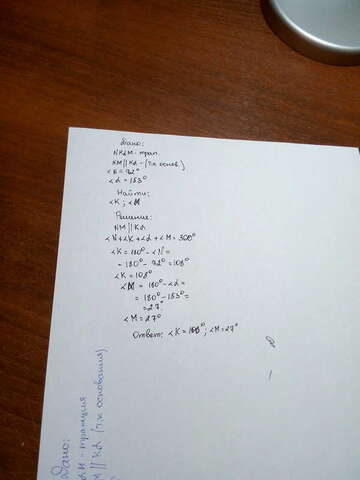 Дано:
NKLM - трап.
NM||KL - (т.к основ.)
∠N = 72°
∠L = 153°
Найти:
∠K; ∠M
Решение:
NM||KL
∠N+∠K+∠L+∠M=360°
∠K=180°-∠N=
=180°-72°=108°
∠K=108°
∠M = 180°-∠L=
= 180°-153°=
=27°
∠M=27°
Ответ: ∠K=108°; ∠M=27°
Дано:
M - трапция
M || KL (т.к основания)